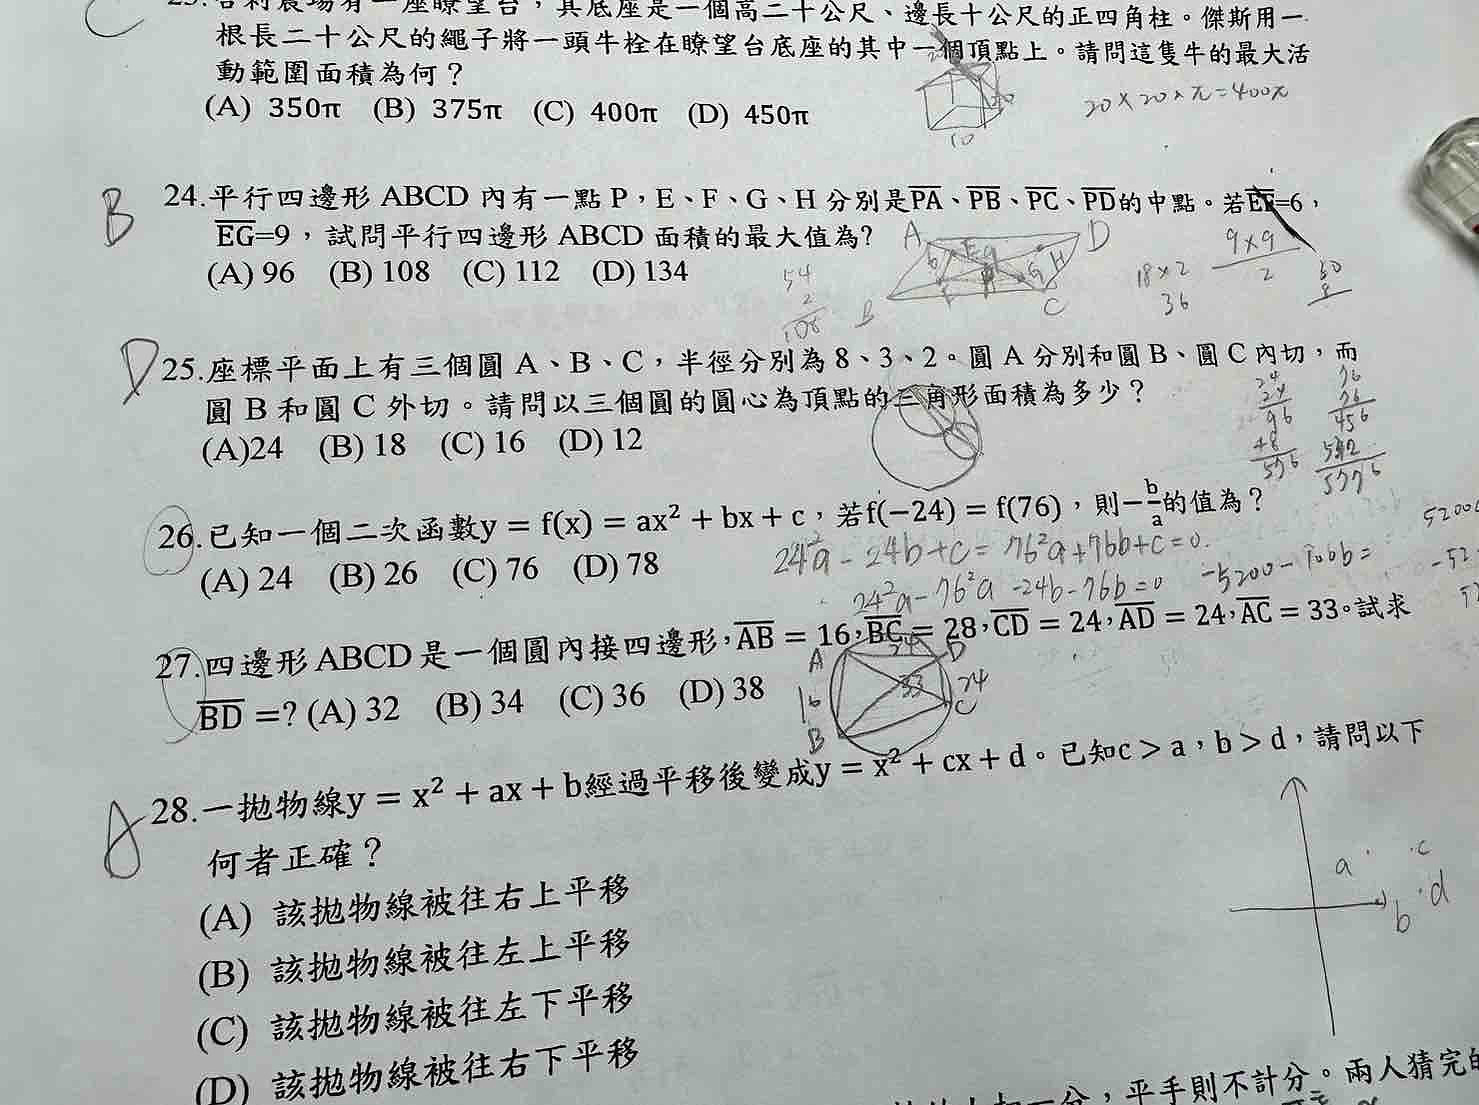 座瞭望台,其底座是一個高二十公尺、邊長十公尺的正四角柱。傑斯用一
根長二十公尺的繩子將一頭牛栓在瞭望台底座的其中一個頂點上。請問這隻牛的最大活
動範圍面積為何?
(A) 350π (B) 375π (C) 400π (D) 450π
20×20×π=400π
10
B
24.平行四邊形 ABCD 內有一點 P,E、F、G、H 分別是PA、PB、PC、PD的中點。若EF=6,
EG=9,試問平行四邊形 ABCD 面積的最大值為?
(A) 96 (B) 108 (C) 112 (D) 134
54
2
108
A D B C
18×2
36
9×9
2
D
25.座標平面上有三個圓 A、B、C,半徑分別為 8、3、2。圓 A 分別和圓 B、圓 C 內切,而
圓 B 和圓 C 外切。請問以三個圓的圓心為頂點的三角形面積為多少?
(A)24 (B) 18 (C) 16 (D) 12
24
24
96
48
576
76
76
456
532
5776
26.已知一個二次函數y = f(x) = ax² + bx + c,若f(−24) = f(76),則−b/a的值為?
(A) 24 (B) 26 (C) 76 (D) 78
24²a − 24b + c = 76²a + 76b + c = 0
24²a − 76²a − 24b − 76b = 0
−5200 − 100b =
27.四邊形 ABCD 是一個圓內接四邊形,AB = 16,BC = 28,CD = 24,AD = 24,AC = 33。試求
BD =? (A) 32 (B) 34 (C) 36 (D) 38
A 24 D
16 33 24
B C
A
28.一拋物線y = x² + ax + b經過平移後變成y = x² + cx + d。已知c > a,b > d,請問以下
何者正確?
(A) 該拋物線被往右上平移
(B) 該拋物線被往左上平移
(C) 該拋物線被往左下平移
(D) 該拋物線被往右下平移
a c
b d
一分,平手則不計分。兩人猜完的